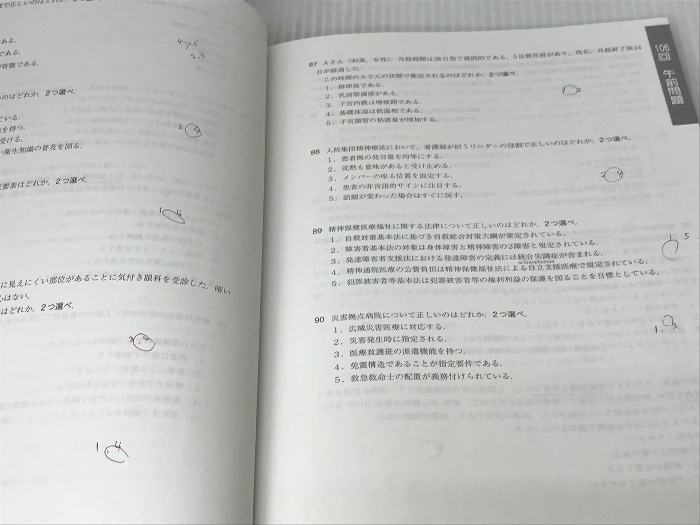 で正しいのはどれか．2つ選べ．
ある．
である．
特徴である．
のはどれか．2つ選べ．
ている．
を持つ．
受ける．
い衛生知識の普及を図る．
要素はどれか．2つ選べ．
に見えにくい部位があることに気付き眼科を受診した．
はない．
はどれか．2つ選べ．
106回 午前問題
87 Aさん（30歳，女性），月経周期は28日型で規則的である．5日間月経があり，現在，月経終了後14
日が経過した．
この時期のAさんの状態で推定されるのはどれか．2つ選べ．
1．排卵後である．
2．乳房緊満感がある．
3．子宮内膜は増殖期である．
4．基礎体温は低温相である．
5．子宮頸管の粘液量が増加する．
1 2
88 入院集団精神療法において，看護師が担うリーダーの役割で正しいのはどれか．2つ選べ．
1．患者間の発言量を均等にする．
2．沈黙も意味があると受け止める．
3．メンバーの座る位置を固定する．
4．患者の非言語的サインに注目する．
5．話題が変わった場合はすぐに戻す．
2 4
89 精神保健医療福祉に関する法律について正しいのはどれか．2つ選べ．
1．自殺対策基本法に基づき自殺総合対策大綱が策定されている．
2．障害者基本法の対象は身体障害と精神障害の2障害と規定されている．
3．発達障害者支援法における発達障害の定義には統合失調症が含まれる．
4．精神通院医療の公費負担は精神保健福祉法による自立支援医療で規定されている．
5．犯罪被害者等基本法は犯罪被害者等の権利利益の保護を図ることを目標としている．
1 5
90 災害拠点病院について正しいのはどれか．2つ選べ．
1．広域災害医療に対応する．
2．災害発生時に指定される．
3．医療救護班の派遣機能を持つ．
4．免震構造であることが指定要件である．
5．救急救命士の配置が義務付けられている．
1. 3